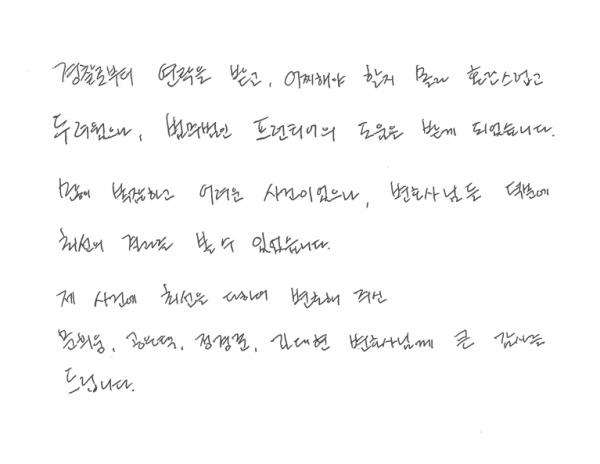 경찰로부터 연락을 받고, 어찌해야 할지 몰라 혼란스럽고
두려웠으나, 법무법인 프런티어의 도움을 받게 되었습니다.
복잡하고 어려운 사건이었으나, 변호사님들 덕분에
최선의 결과를 볼 수 있었습니다.
제 사건에 최선을 다하여 변호해 주신
문희웅, 정경준, 김대현 변호사님께 큰 감사를
드립니다.